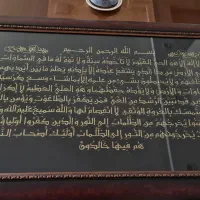 بسم الله الرحمن الرحيم
لا إله إلا هو الحي القيوم لا تأخذه سنة ولا نوم له ما في السماوات
الأرض من ذا الذي يشفع عنده إلا بإذنه يعلم ما بين أيديهم
خلفهم ولا يحيطون بشيء من علمه إلا بما شاء وسع كرسيه
والأرض ولا يؤده حفظهما وهو العلي العظيم لا إكراه
في الدين قد تبين الرشد من الغي فمن يكفر بالطاغوت ويؤمن بالله
استمسك بالعروة الوثقى لا انفصام لها والله سميع عليم الله
يخرجهم من الظلمات إلى النور والذين كفروا أوليا
يخرجونهم من النور إلى الظلمات أولئك أصحاب
هم فيها خالدون